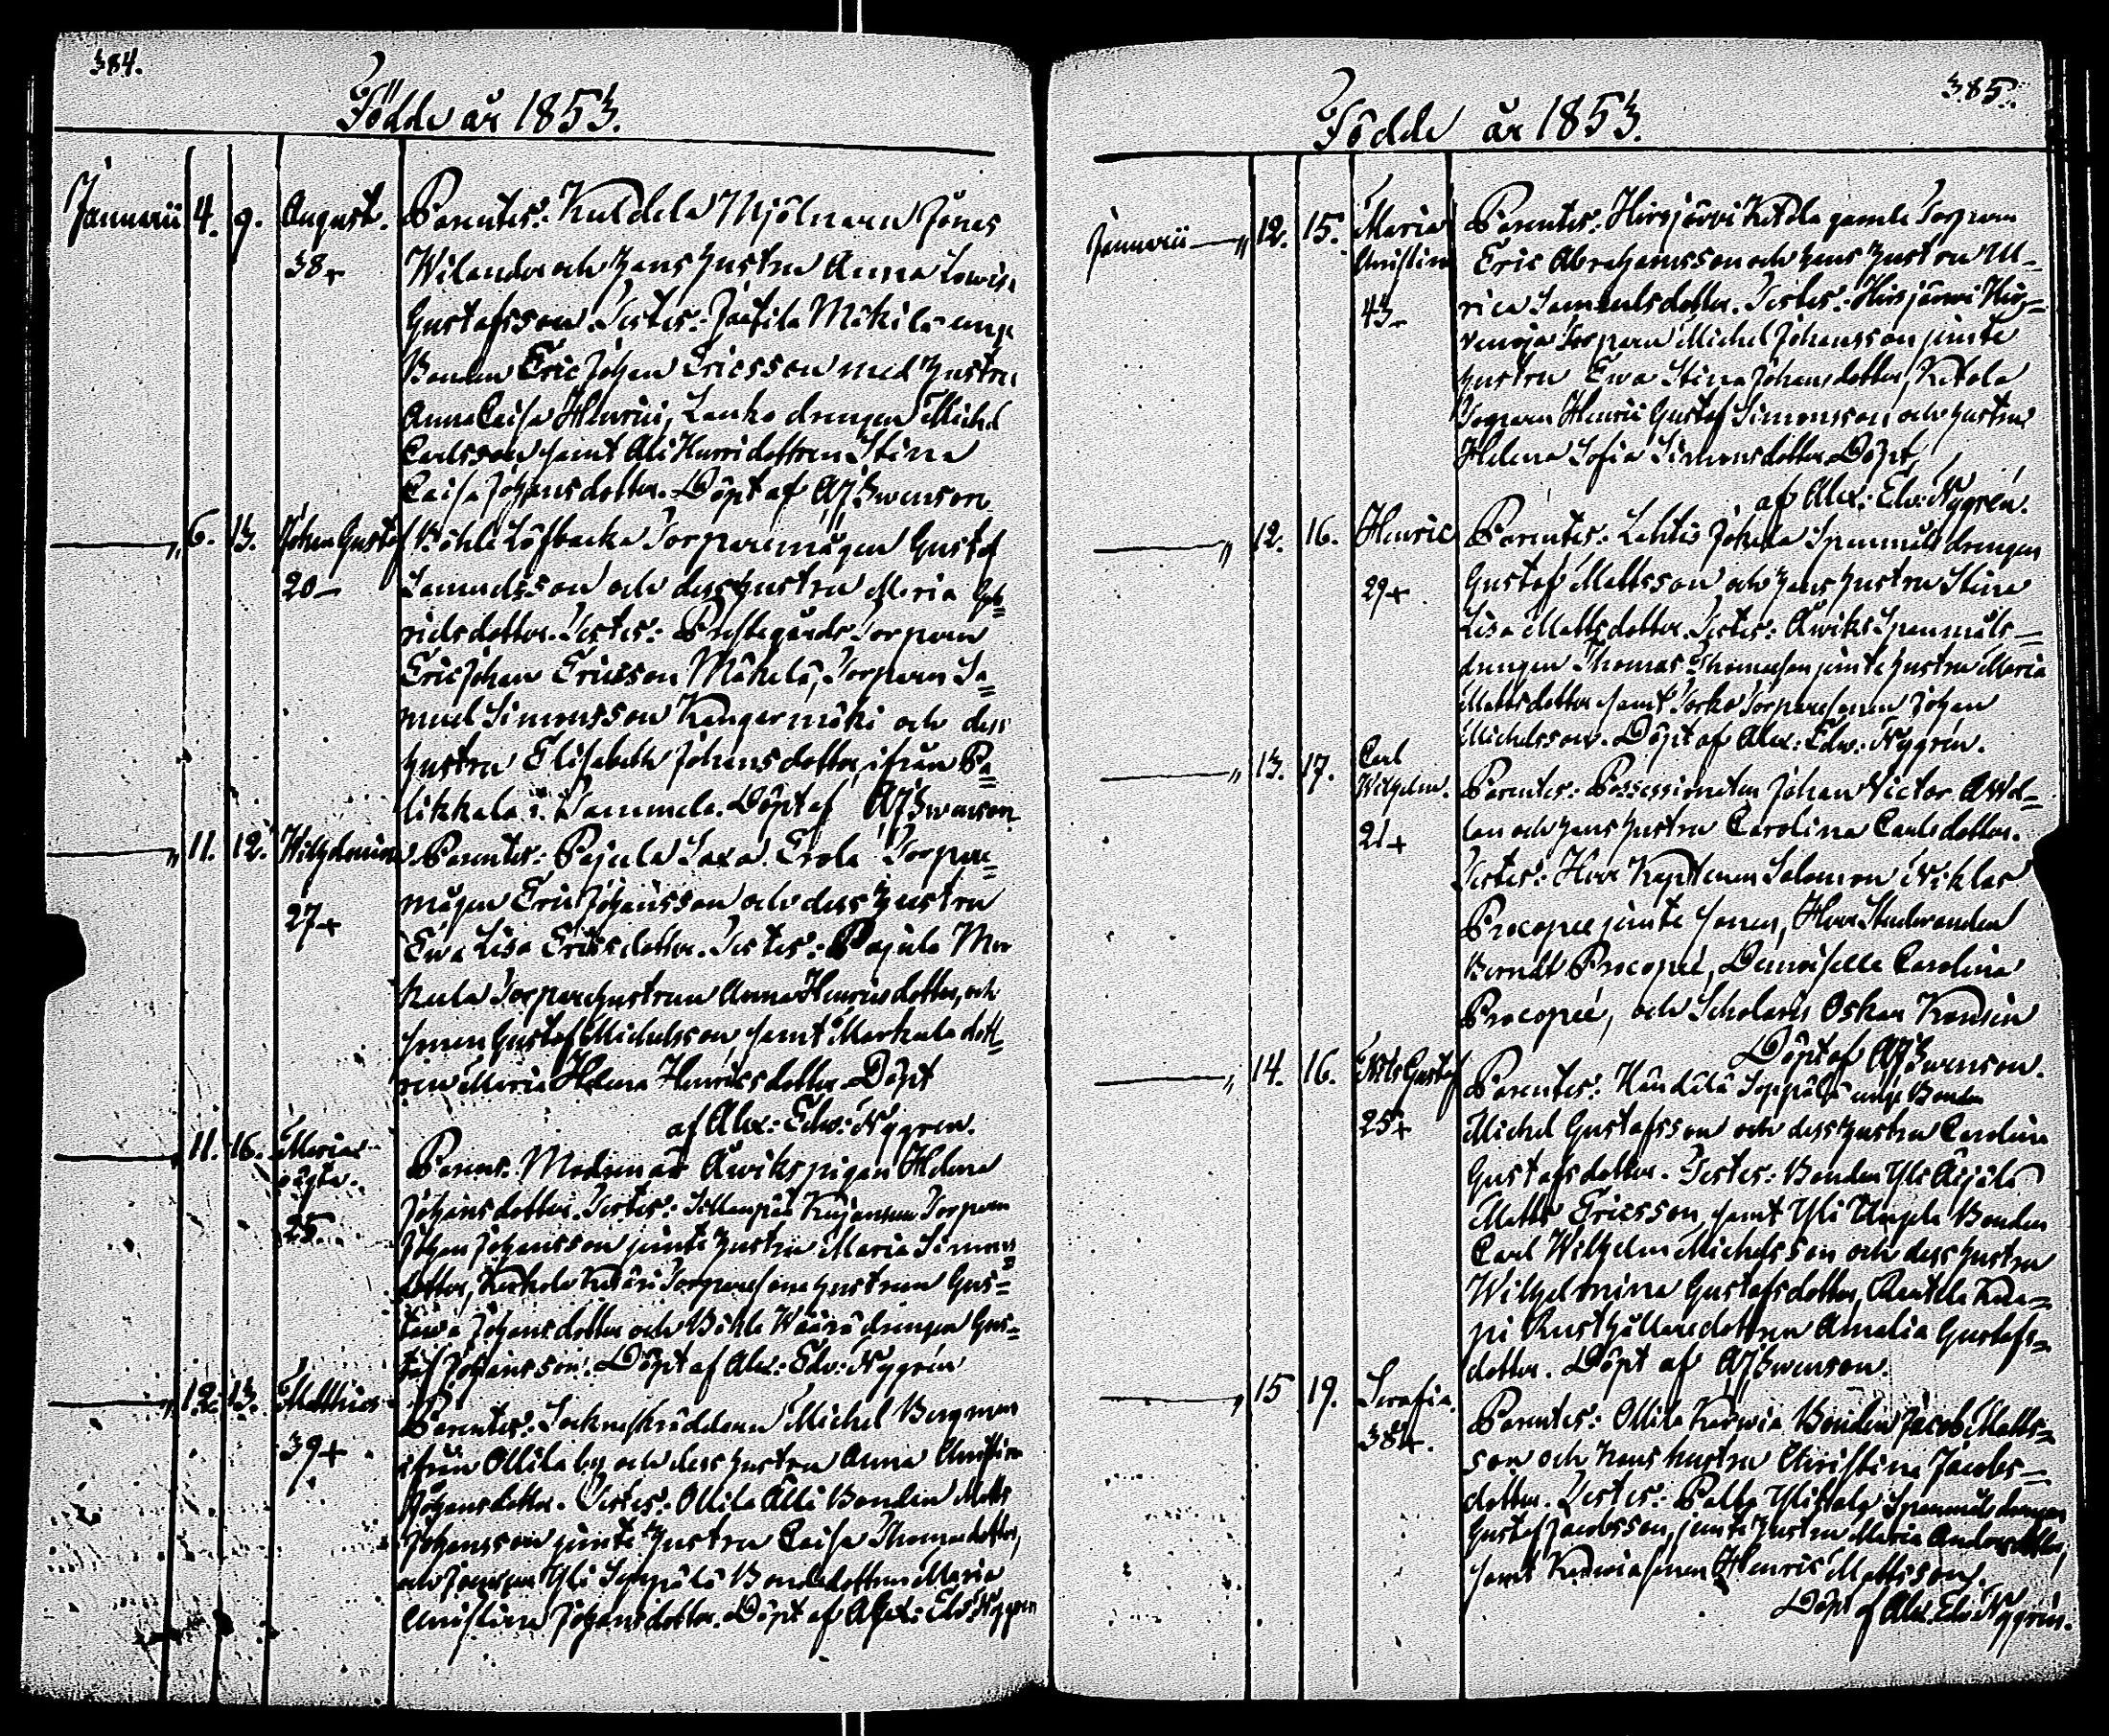 384.
Födde år 1853.
Januarii 4. 9. August. Parentes: Kuldela Mjölnaren Jonas
38+ Wilander och hans hustru Anna Lowisa
Gustafsson. Testes: Mäkilä unge
Bonden Eric Johan Ericsson med hustru
Anna Caisa Henrici, Lauko drengen Michel
Carlsson samt Ali Hurri dottren Stina
Caisa Johansdotter. Döpt af AJ Swenson
" 6. 13. Johan Gustaf Böhle Löfbacka Torparemågen Gustaf
20– Samuelsson och dess hustru Maria Gab=
rielsdotter. Testes: Prestegårds Torparen
Eric Johan Ericsson Mäkelä, Torparen Sa=
muel Simonsson Kangarmäki och dess
hustru Elisabeth Johansdotter, ifrån Pa=
likkala i Tammela. Döpt af AJ Swenson.
" 11. 12. Wilhelmina. Parentes: Pajula Saxa Erola Torpare=
27+ mågen Eric Johansson och dess hustru
Ewa Lisa Ericsdotter. Testes: Pajula
Torparehustrun Anna Henricsdotter, och
sonen Gustaf Michelsson samt Markula dott=
ren Maria Helena Henricsdotter. Döpt
af Alex: Edw: Nygren.
" 11. 16. Maria Parens: Modren är Äwiks pigan Helena
oägta. Johansdotter. Testes: Torparen
25. Johan Johansson jemte hustru Maria Simons
dotter, Torparesone hustrun Gus=
tawa Johansdotter och Böhle drengen Gus=
taf Johansson. Döpt af Alex: Edw: Nygrén
" 12. 13. Matthias Parentes: Sockneskräddaren Michel Bergman
39+ ifrån Ollila by och dess hustru Anna Christina
Johansdotter. Testes: Ollila Älli Bonden Matts
Johansson jemte hustru Caisa Thomasdotter,
och Yli Seppälä Bondedottren Maria
Christina Johansdotter. Döpt af Alex: Edv: Nygren
385.
Födde år 1853.
Januarii " 12. 15. Maria Parentes: Hirsjärvi Ketola gamle Torparen
Christina Eric Abrahamsson och hans hustru Ul=
43– rica Samuelsdotter. Testes: Hirsjärvi Hir=
venoja Torparen Michel Johansson jemte
hustru Ewa Stina Johansdotter, Ketola
Torparen Henric Gustaf Simonsson och hustru
Helena Sofia Simonsdotter. Döpt
af Alex: Edv: Nygrén.
" 12. 16. Henric Parentes: Lahtis Spanmåls drengen
29+ Gustaf Mattsson och hans hustru Stina
Lisa Mattsdotter. Testes: Äwiks Spanmåls=
drengen Thomas Thomasson jemte hustru Maria
Mattsdotter samt Torparesonen Johan
Michelsson. Döpt af Alex: Edw: Nygrén.
" 13. 17. Carl
Wilhelm. Parentes: Possessionaten Johan Victor
21+ och hans hustru Carolina Carlsdotter.
Testes: Herr Kaptenen Salomon Niklas
Procopée jemte sonen, Herr Studeranden
Berndt Procopeé, Demoiselle Carolina
Procopeé, och Scholaris Oskar Konsin
Döpt af AJ Swenson.
" 14. 16. Nils Gustaf Parentes: Kändilä Seppälä unge Bonden
25+ Michel Gustafsson och dess hustru Carolina
Gustafsdotter. Testes: Bonden Yli Äijälä
Matts Ericsson, samt Yli Bonden
Carl Wilhelm Michelsson och dess hustru
Wilhelmina Gustafsdotter, Rautela Knaa=
pi Rusthållaredottren Amalia Gustafs=
dotter. Döpt af AJ Swenson.
" 15 19. Serafia. Parentes: Ollila Karwia Bonden Jacob Matts=
38+. son och hans hustru Christina Jacobs=
dotter. Testes: Palla Ylistalo Spanmåls drengen
Gustaf Jacobsson, jemte hustru Maria Andersdotter,
samt Karwia sonen Henric Mattsson.
Döpt af Alex. Edv. Nygrén.